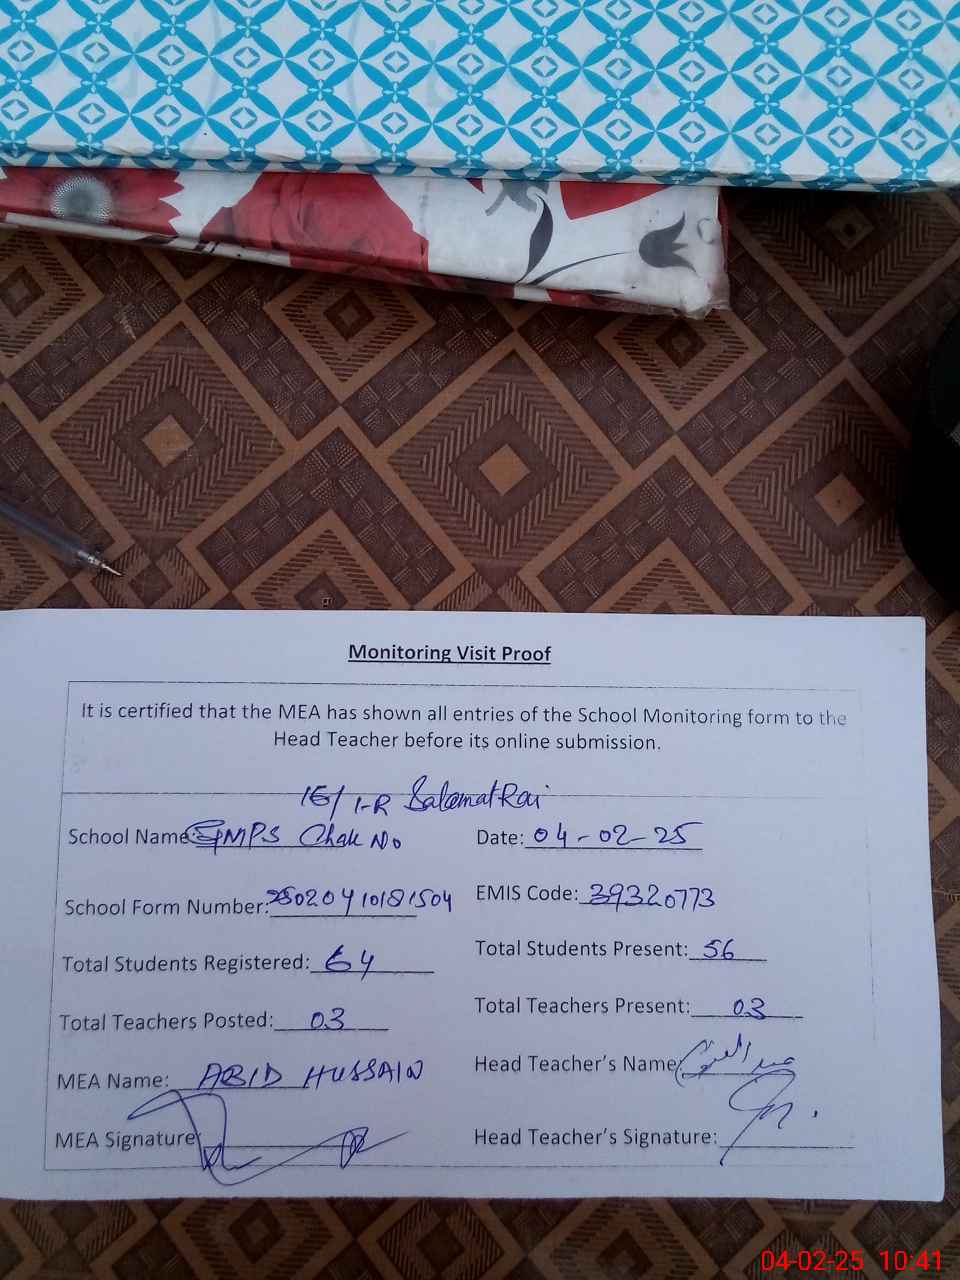 Monitoring Visit Proof
It is certified that the MEA has shown all entries of the School Monitoring form to the
Head Teacher before its online submission.
16/1-R Salamat Rai
School Name: GMPS Chak No
Date: 04-02-25
School Form Number:
EMIS Code: 39320773
Total Students Registered: 64
Total Students Present: 56
Total Teachers Posted: 03
Total Teachers Present: 03
MEA Name: ABID HUSSAIN
Head Teacher's Name: عبدالعزیز
MEA Signature
Head Teacher's Signature:
04-02-25 10:41